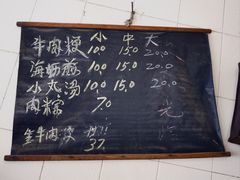 小 中 大
牛肉粳 100 150 200
海蚵煎 100 15.0 20.0
小丸湯 10.0 15.0 20.0
肉粽 70
牛肉
37.